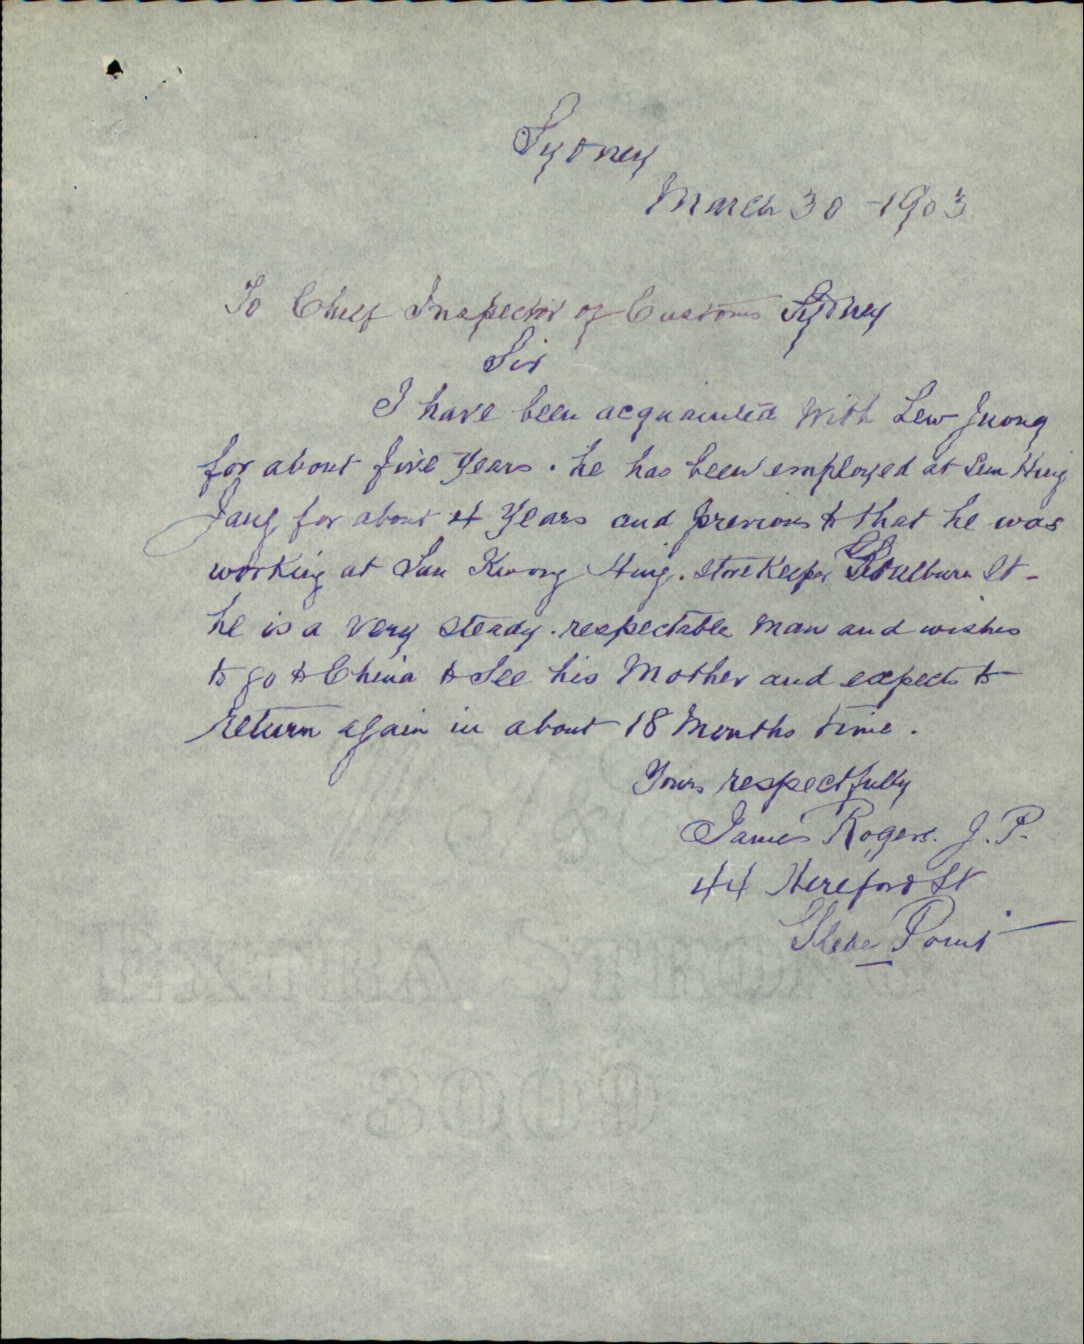 Sydney
March 30 - 1903
To Chief Inspector of Customs Sydney
Sir
I have been acquainted with Lew Juong
for about five years. he has been employed at Sun Hing
Jang for about 4 years and previous to that he was
working at San Kwong Hing. storekeeper Goulburn St -
he is a very steady. respectable man and wishes
to go to China to see his Mother and expects to
return again in about 18 Months time.
Yours respectfully
James Rogers. J. P.
44 Hereford St
Glebe Point